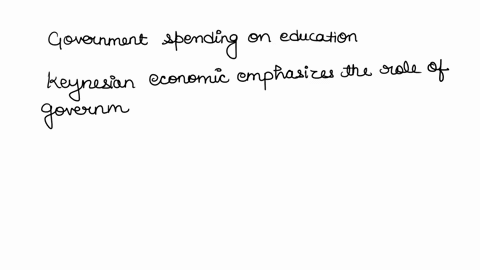 Government spending on education
Keynesian economic emphasizes the role of
governm